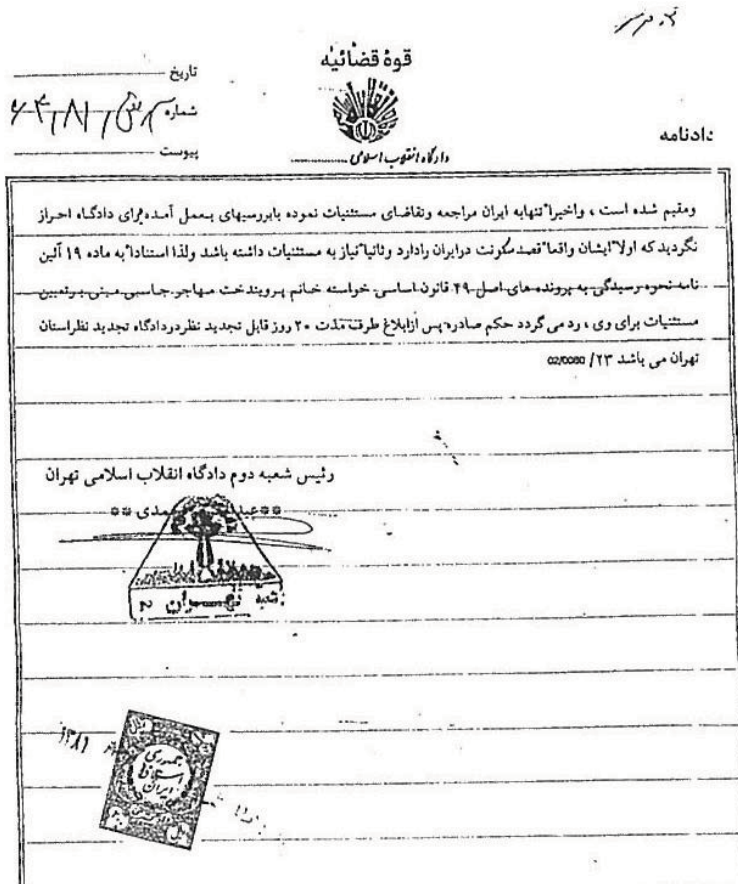 قوهٔ قضائیه
دادگاه انقلاب اسلامی
تاریخ
شماره
پیوست
دادنامه
ومقیم شده است ، واخیرا"تنهابه ایران مراجعه وتقاضای مستثنیات نموده بابررسیهای بعمل آمده برای دادگاه احراز
نگردید که اولا"ایشان واقعا"قصد سکونت درایران رادارد وثانیا"نیاز به مستثنیات داشته باشد ولذا استنادا"به ماده ۱۹ آئین
نامه نحوه رسیدگی به پرونده های اصل ۴۹ قانون اساسی خواسته خانم پرویندخت مهاجر جاسبی مبنی برتعیین
مستثنیات برای وی ، رد می گردد حکم صادره پس ازابلاغ ظرف مدت ۲۰ روز قابل تجدید نظردردادگاه تجدید نظراستان
تهران می باشد ۲۳/ 02/0080
رئیس شعبه دوم دادگاه انقلاب اسلامی تهران
شعبه تهران 2
۱۳۸۱
جمهوری
اسلامی
ایران